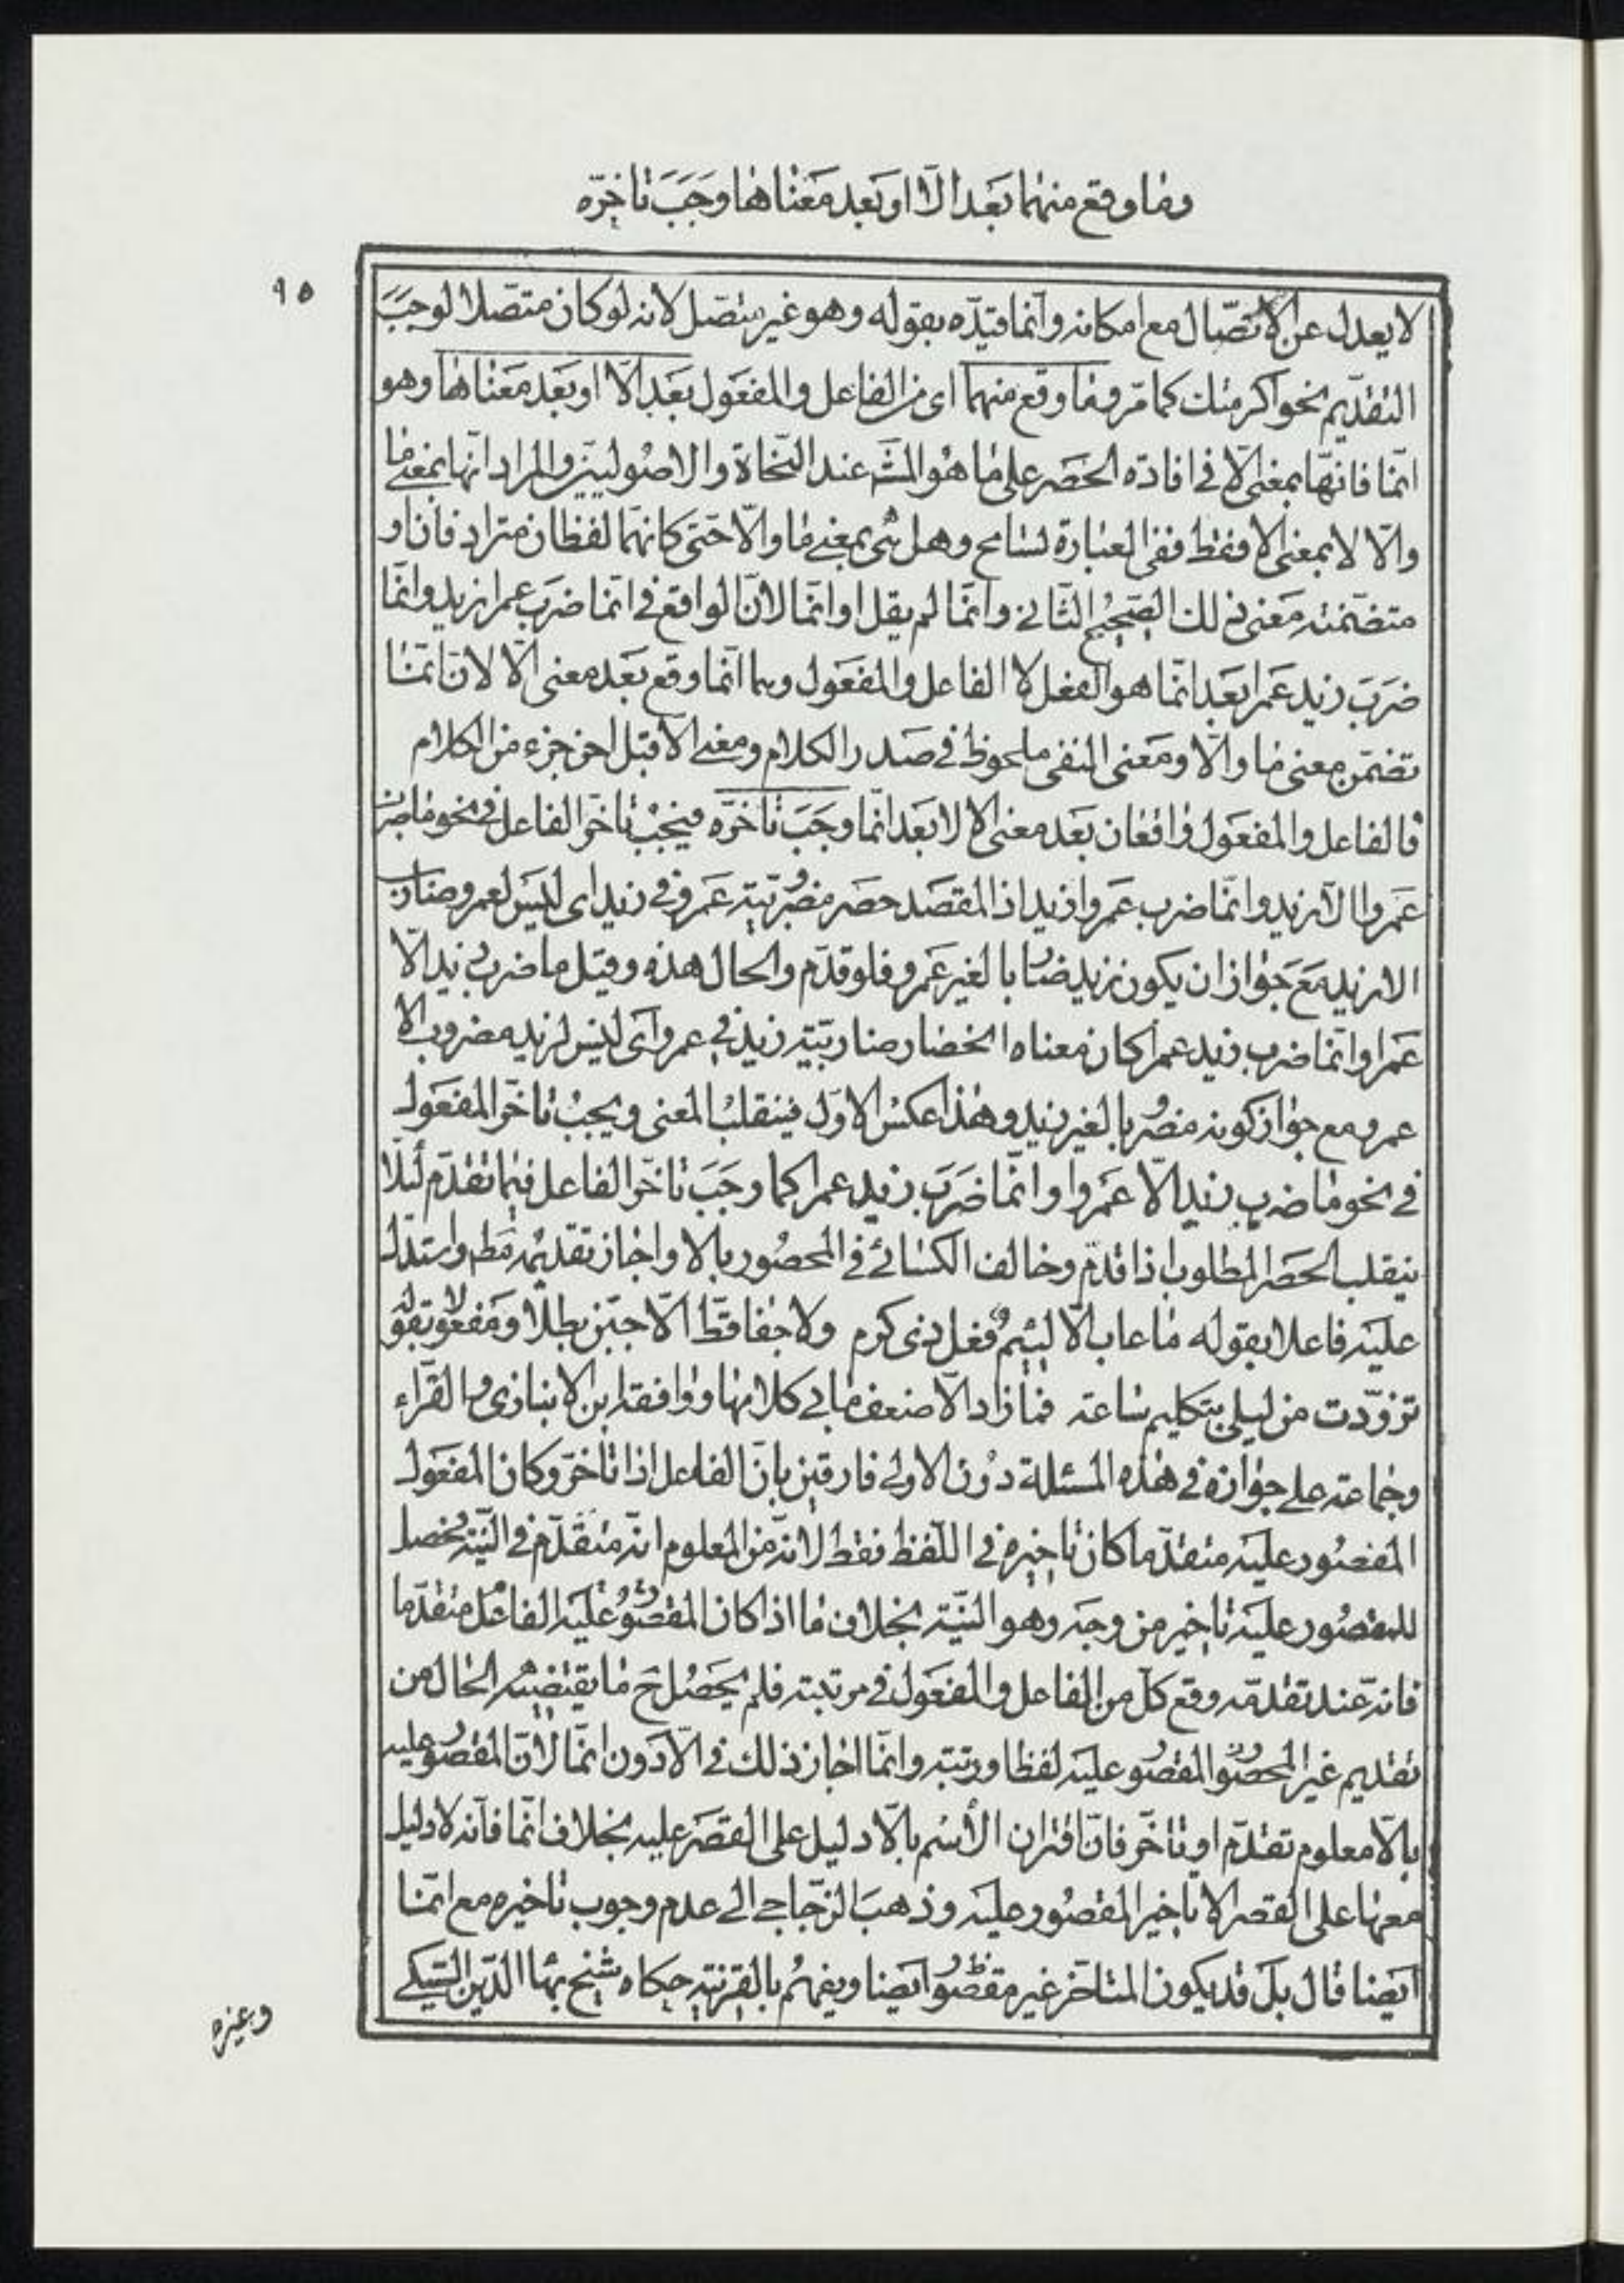 وما وقع منهما بعد الّا او بعد معناها وجب تاخّره
٩٥
لا يعدل عن الاتّصال مع امكانه وانّما قيّده بقوله وهو غير متّصل لانه لو كان متصّلا لوجب
التقديم نحو اكرمتك كما مرّ وما وقع منهما اى من الفاعل والمفعول بعد الّا او بعد معناها وهو
انّما فانهّا بمعنى الّا فى افادته الحصر على ما هو المشّ عند النّحاة والاصوليّين والمراد انّها بمعنى ما
والّا لا بمعنى الا فقط ففى العبارة تسامح وهل هى بمعنى ما والّا حتى كانهّما لفظان مترادفان او
متضّمنة معنى ذلك الصّحيح الثّانى وانّما لم يقل او انّما لانّ الواقع فى انّما ضرب عمرا زيد وانّما
ضرب زيد عمرا بعد انّما هو الفعل لا الفاعل والمفعول وهما انّما وقع بعد معنى الّا لانّ انّما
تضمّن معنى ما والّا ومعنى النفى ملحوظ فى صدر الكلام ومعنى الّا قبل اخر جزء من الكلام
فالفاعل والمفعول واقعان بعد معنى الا لا بعد انّما وجب تاخّره فيجب تاخّر الفاعل فى نحو ما ضرب
عمروا الّا زيد وانّما ضرب عمروا زيد اذ المقصد حصر مضروبيّة عمرو فى زيد اى ليس لعمرو ضارب
الا زيد مع جواز ان يكون زيد ضاربا لغير عمرو فلو قدّم والحال هذه وقيل ما ضرب زيد الّا
عمرا وانّما ضرب زيد عمرا كان معناه انحصار ضاربيّة زيد فى عمرو اى ليس لزيد مضروب الا
عمرو مع جواز كونه مضروبا لغير زيد وهذا عكس الاوّل فينقلب المعنى ويجب تاخّر المفعول
فى نحو ما ضرب زيد الّا عمروا وانّما ضرب زيد عمرا كما وجب تاخّر الفاعل فيما تقدّم لئلّا
ينقلب الحصر المطلوب اذا قدّم وخالف الكسائى فى المحصور بالا واجاز تقديمه مط واستدلّ
عليه فاعلا بقوله ما عاب الّا لئيم فعل ذى كرم ولا جفا قطّ الّا جبّن بطلا ومفعولا بقوله
تزوّدت من ليلى بتكليم ساعة فما زاد الّا ضعف ما بى كلامها ووافقه ابن الانبازى والفرّاء
وجماعة على جوازه فى هذه المسئلة دون الاولى فارقين بانّ الفاعل اذا تاخّر وكان المفعول
المقصور عليه متقدّما كان تاخيره فى اللّفظ فقط لانّه من المعلوم انّه متقدّم فى النّية فحصل
للمقصور عليه تاخير من وجه وهو النيّة بخلاف ما اذا كان المقصور عليه الفاعل متقدّما
فانّه عند تقدّمه وقع كلّ من الفاعل والمفعول فى مرتبته فلم يحصل ح ما يقتضيه الحال من
تقديم غير المحصور المقصور عليه لفظا ورتبة وانّما اجاز ذلك فى الّا دون انّما لانّ المقصور عليه
بالّا معلوم تقدّم او تاخّر فانّ اقتران الاسم بالّا دليل على القصر عليه بخلاف انّما فانّه لا دليل
معها على القصر الا تاخير المقصور عليه وذهب الزّجاجى الى عدم وجوب تاخيره مع انّما
ايضا قال بل قد يكون المتاخّر غير مقصور ايضا ويفهم بالقرينة حكاه شيخ بهاء الدّين السّبكى
وغيره